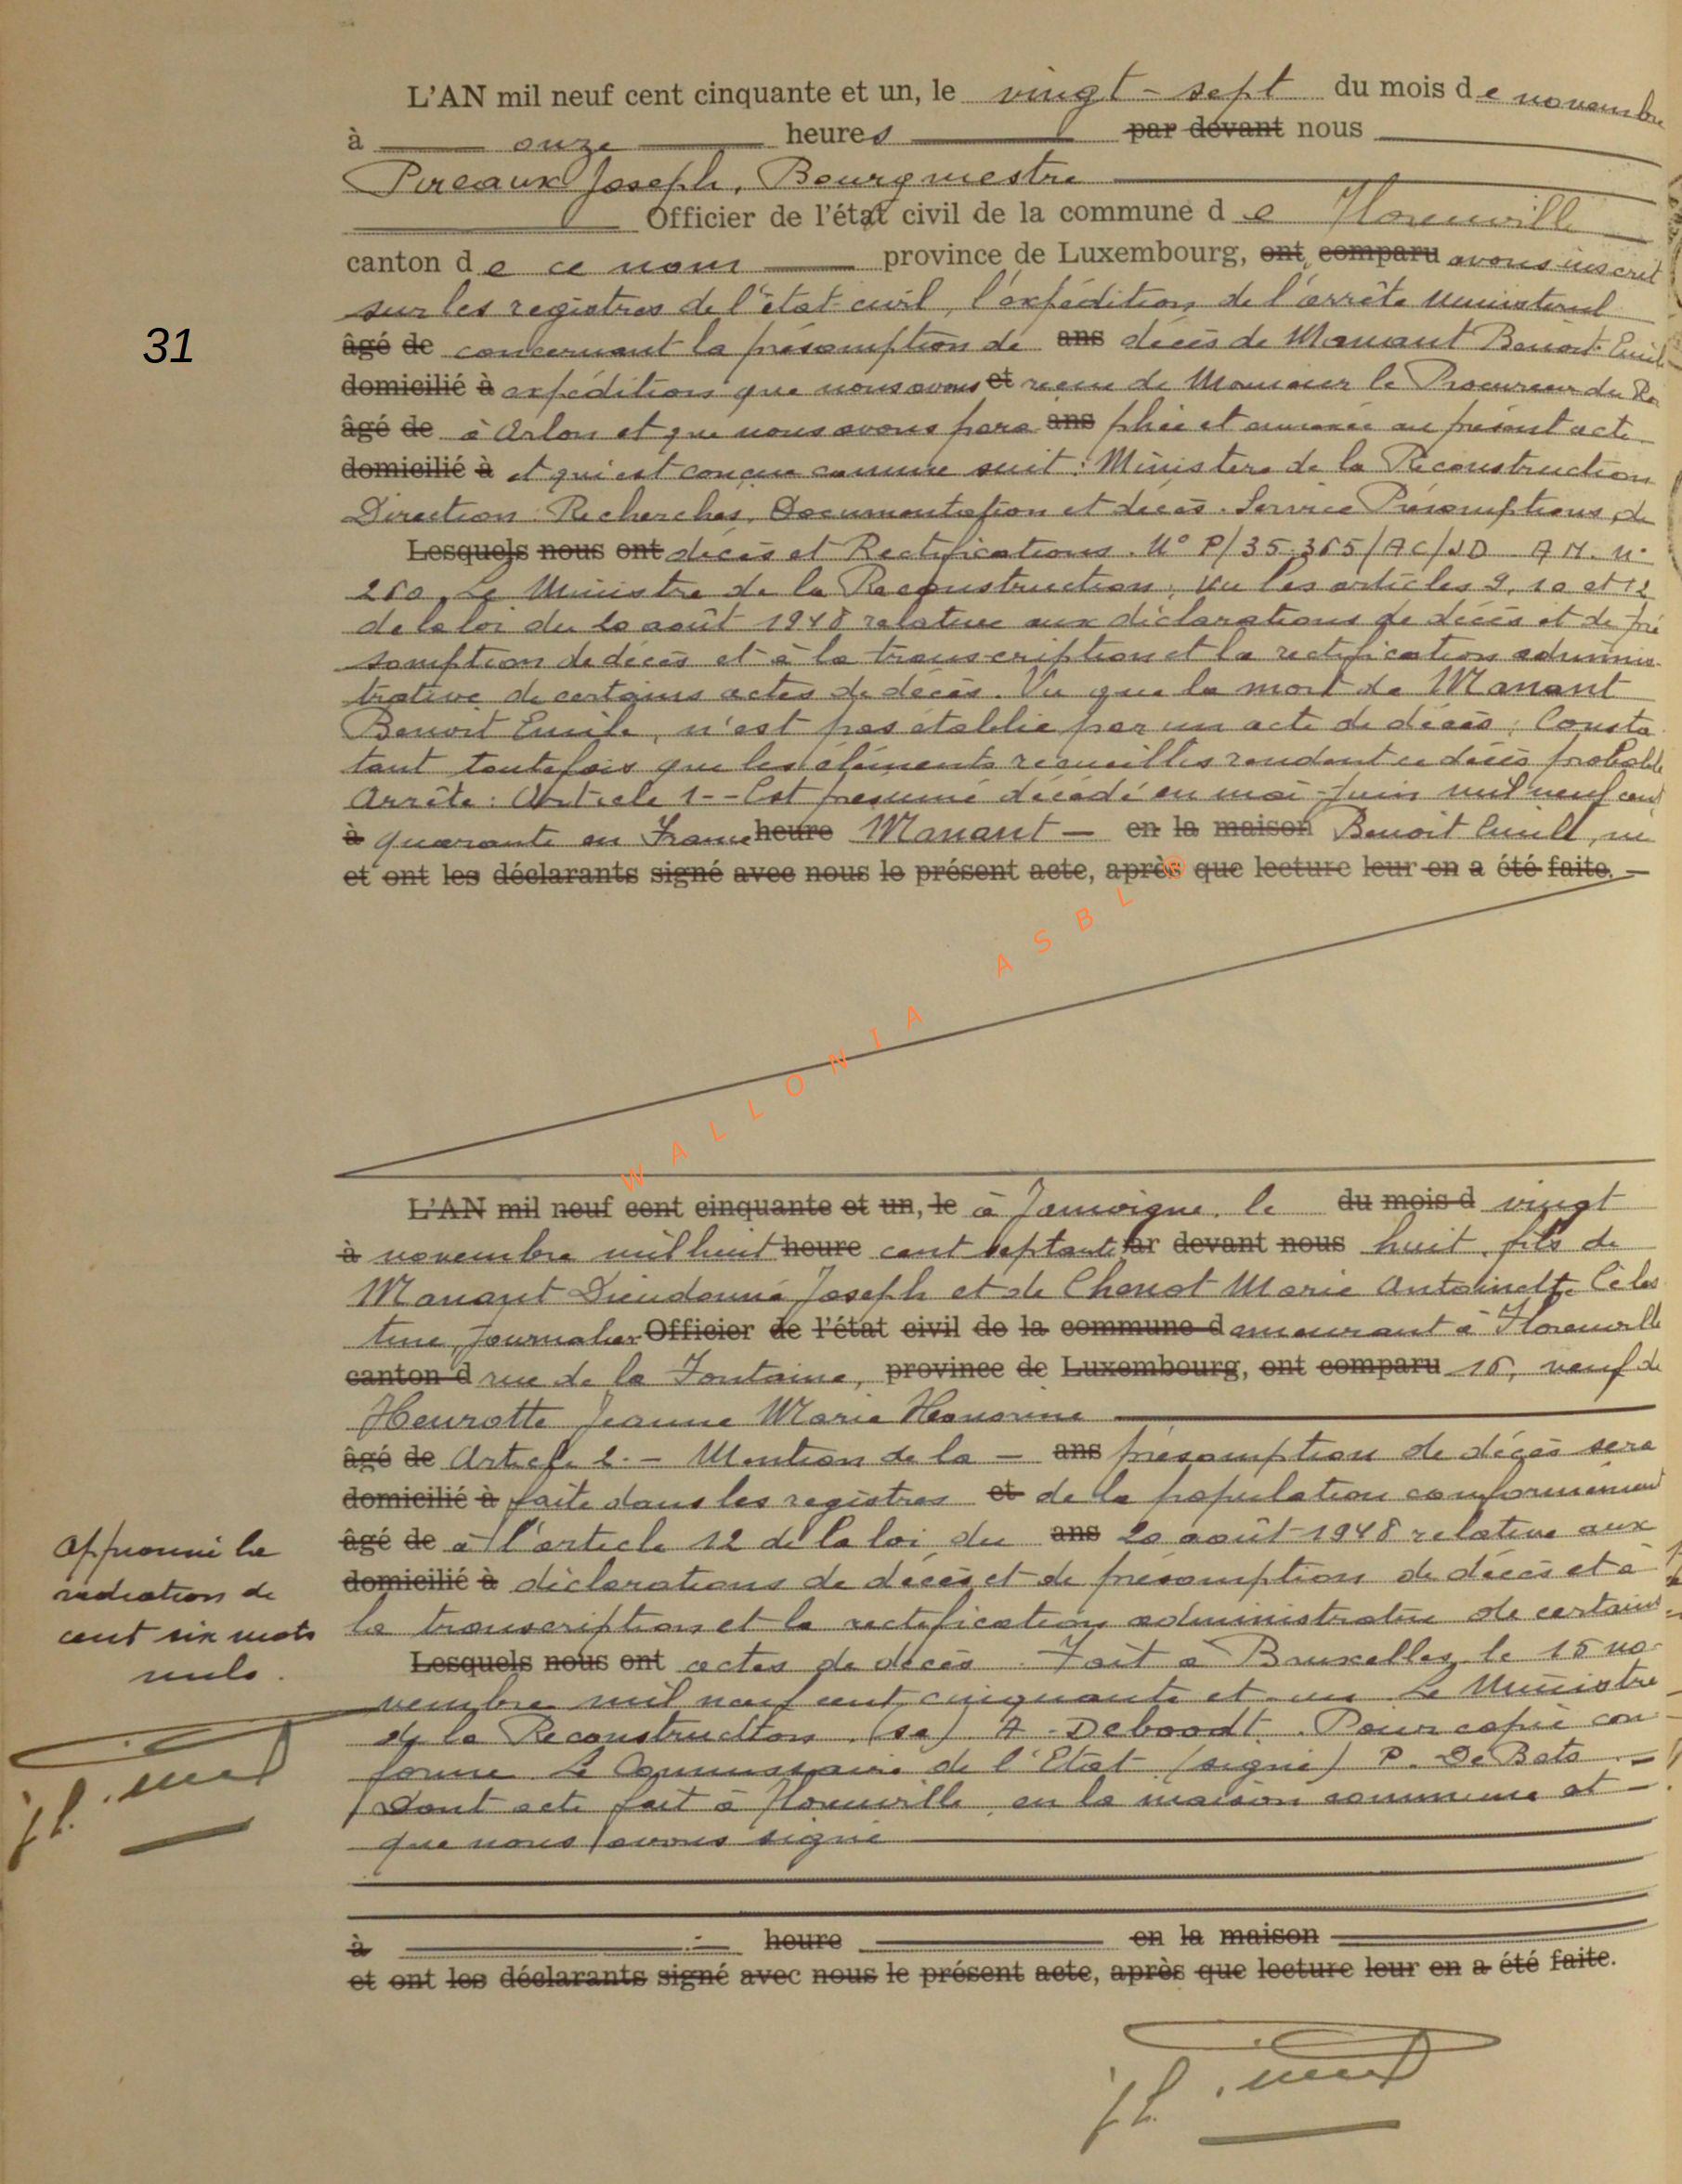 L'AN mil neuf cent cinquante et un, le vingt-sept du mois de novembre
à onze heures par devant nous
Pireaux Joseph, Bourgmestre
Officier de l'état civil de la commune de Florenville
canton de ce nom province de Luxembourg, ont comparu avons inscrit
sur les registres de l'état-civil, l'expédition de l'arrêté ministeriel
31
âgé de concernant la présomption de ans décès de Manant Benoit Emile
domicilié à expédition que nous avons et reçue de Monsieur le Procureur du Roi
âgé de à Arlon et que nous avons para ans phée et annexée au présent acte
domicilié à et qui est conçue comme suit : Ministère de la Reconstruction
Direction Recherches, Documentation et décès. Service Présomptions de
Lesquels nous ont décès et Rectifications. N° P/35.365/AC/JD A.M. n°
260. Le Ministre de la Reconstruction, Vu les articles 9, 10 et 12
de la loi du 20 août 1948 relative aux déclarations de décès et de pré
somption de décès et à la transcription et la rectification adminis-
trative de certains actes de décès. Vu que la mort de Manant
Benoit Emile, n'est pas établie par un acte de décès ; Consta
tant toutefois que les éléments recueillis rendent ce décès probable
Arrête : Article 1-- Est présumé décédé en mai-juin mil neuf cent
à quarante en France heure Manant — en la maison Benoit Emile, né
et ont les déclarants signé avec nous le présent acte, après que lecture leur en a été faite.
WALLONIA ASBL ©
L'AN mil neuf cent cinquante et un, le à Jamoigne, le du mois d vingt
à novembre mil huit heure cent septante par devant nous huit, fils de
Manant Dieudonné Joseph et de Chenot Marie Antoinette Céles
tine, journalier Officier de l'état civil de la commune demeurant à Florenville
canton d rue de la Fontaine, province de Luxembourg, ont comparu 16, veuf de
Heurotte Jeanne Marie Honorine
âgé de Article 2.- Mention de la — ans présomption de décès sera
domicilié à faite dans les registres et de la population conformément
âgé de à l'article 12 de la loi du ans 20 août 1948 relative aux
domicilié à déclarations de décès et de présomption de décès et à
la transcription et la rectification administrative de certains
Lesquels nous ont actes de décès. Fait à Bruxelles, le 15 no-
vembre mil neuf cent cinquante et un Le Ministre
de la Reconstruction (sé) A. Deboodt. Pour copie con
forme Le Commissaire de l'Etat (signé) P. De Bats
Dont acte fait à Florenville, en la maison commune et
que nous avons signé
Approuvé la
radiation de
cent six mots
nuls.
à heure en la maison
et ont les déclarants signé avec nous le présent acte, après que lecture leur en a été faite.